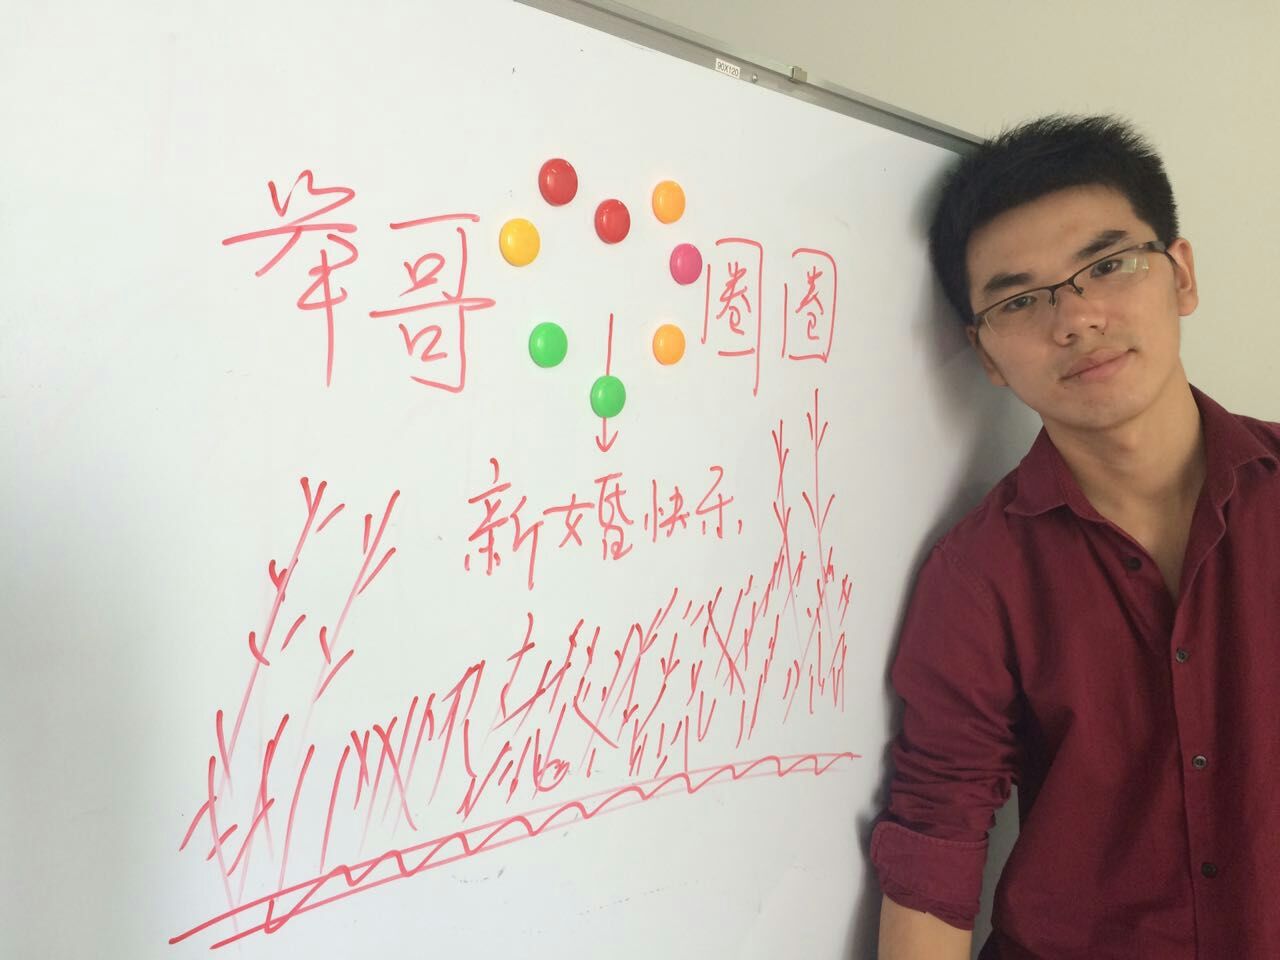 90X120
举哥 圈圈
新婚快乐